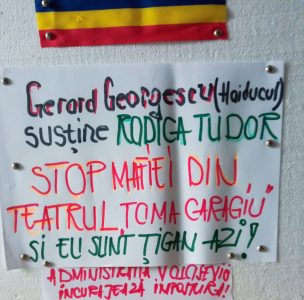 Gerard Georgescu (Haiducul)
susține RODICA TUDOR
STOP MAFIEI DIN
TEATRUL "TOMA CARAGIU"
ȘI EU SUNT ȚIGAN AZI?
ADMINISTRAȚIA VOLOSEVICI
ÎNCURAJEAZĂ IMPOSTURA!